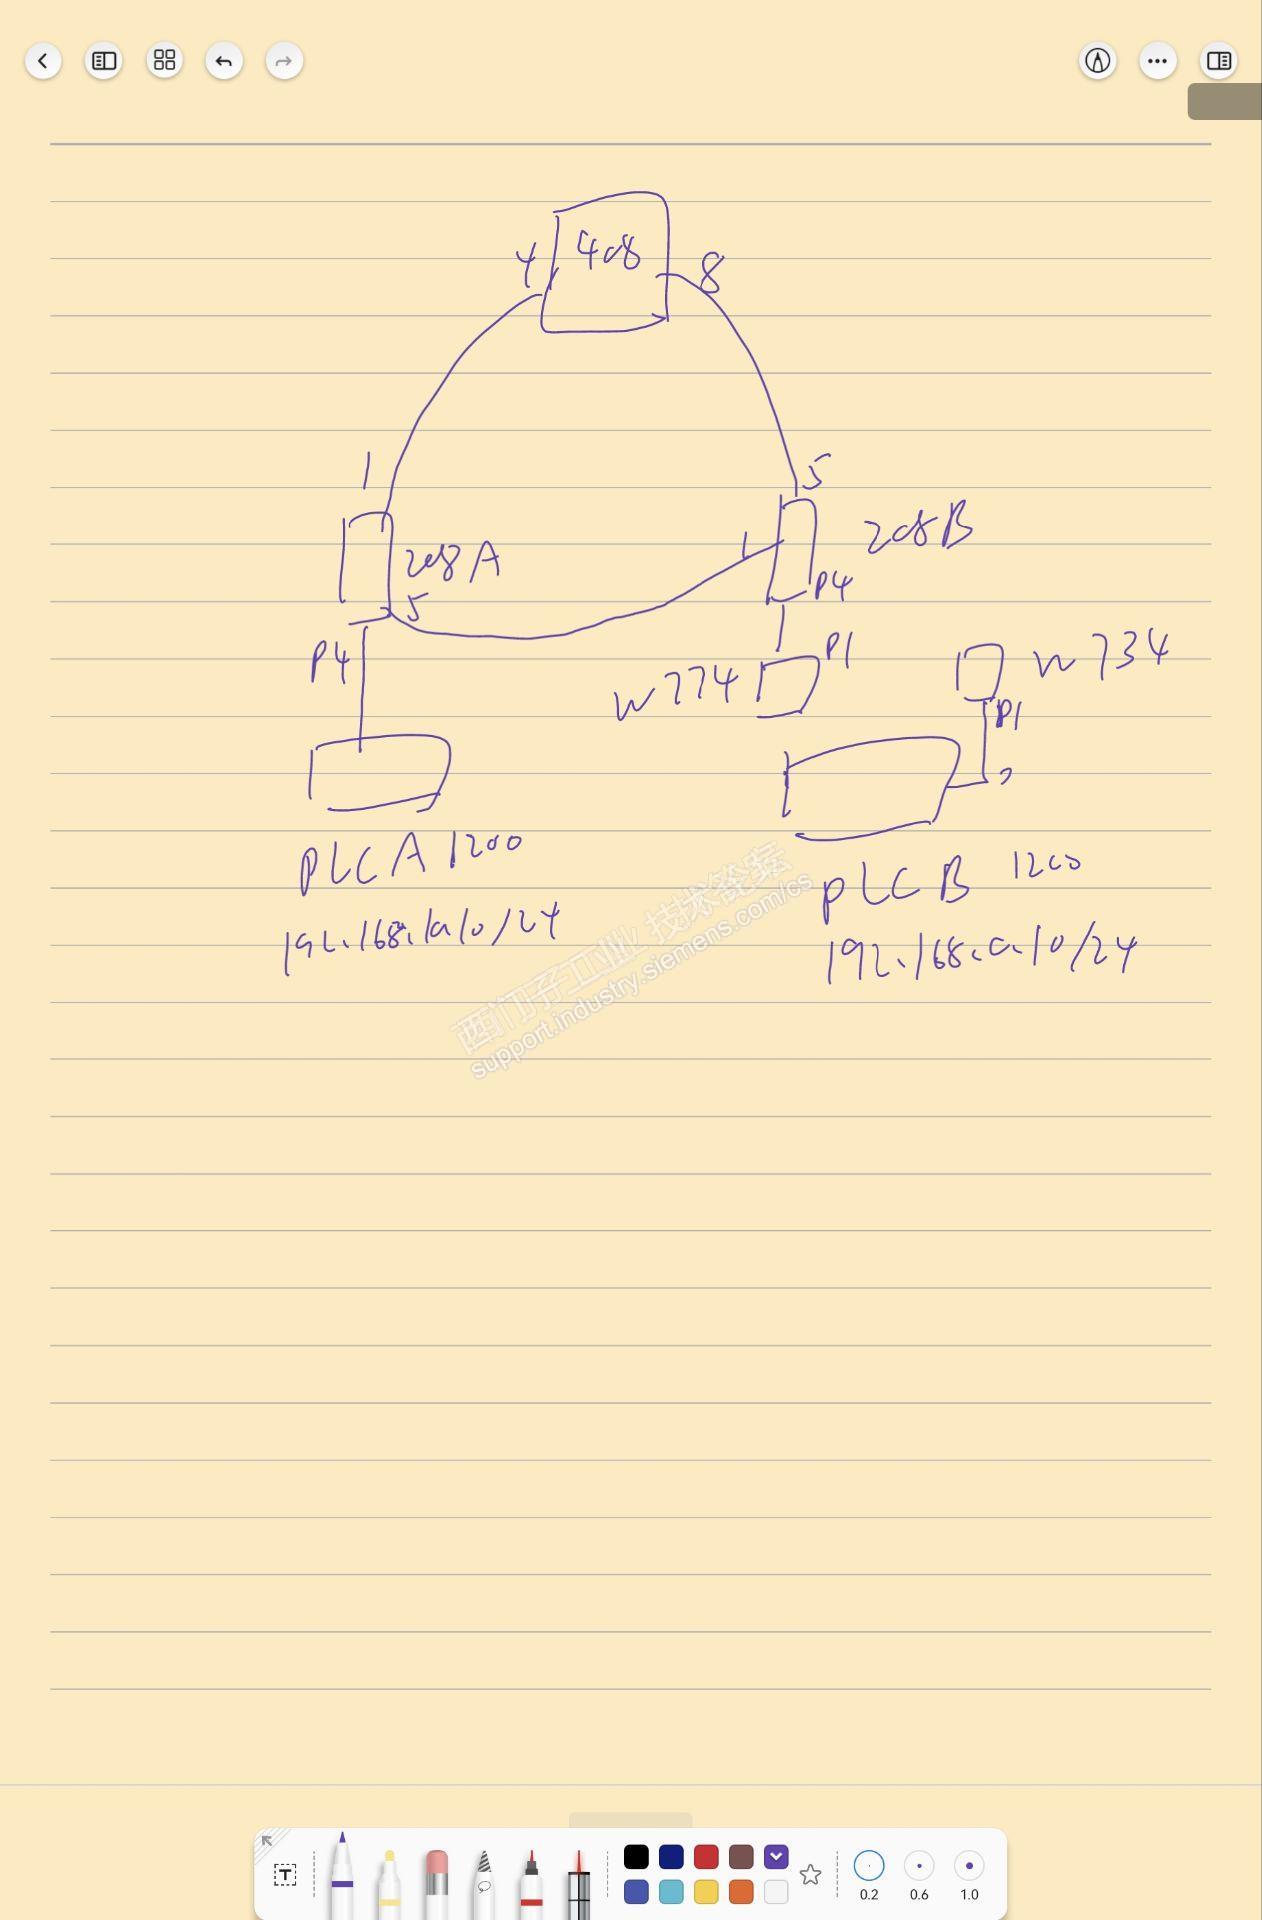 4 408 8
1
5
208A
208B
5
1
P4
P4
P1
W774
W734
P1
PLC A 1200
PLC B 1200
192.168.0.10/24
西门子工业 技术论坛
support.industry.siemens.com/cs
0.2 0.6 1.0